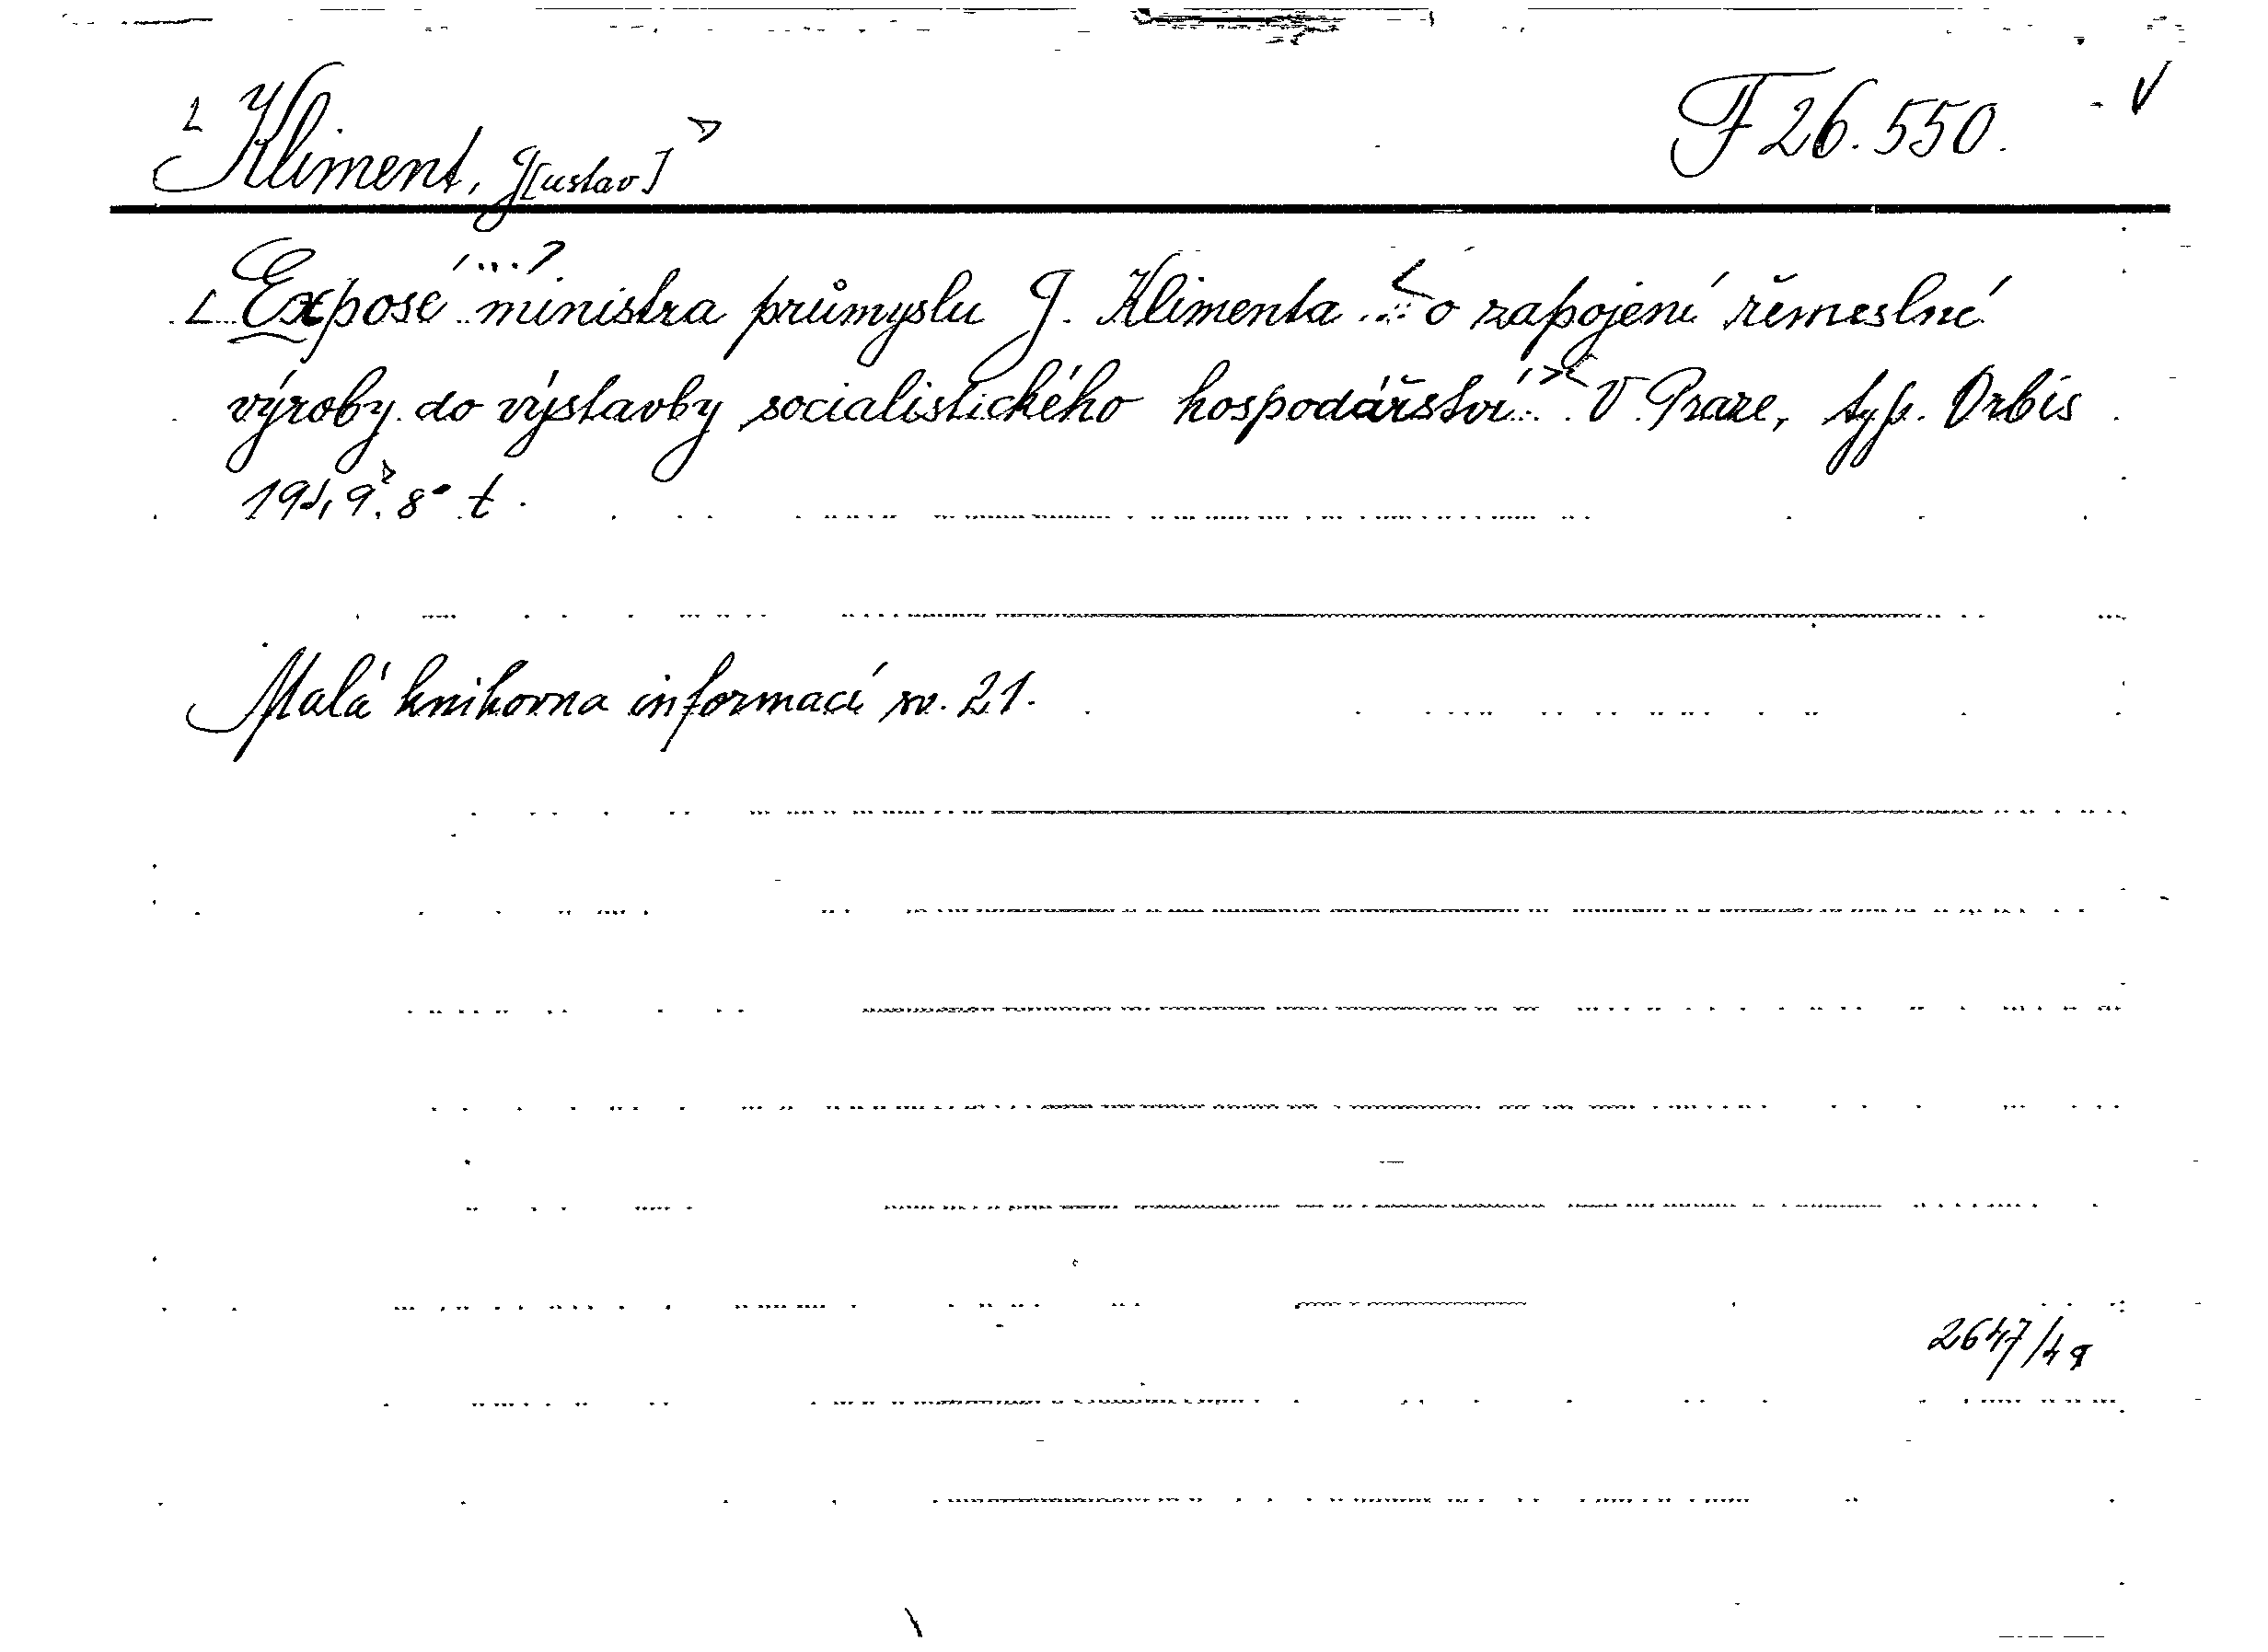 Kliment, G[ustav] F 26.550.
Exposé ... ministra průmyslu G. Klimenta ... o zapojení řemeslné
výroby do výstavby socialistického hospodářství. V Praze, typ. Orbis
1949. 8° t.
Malá knihovna informací sv. 21.
2647/49